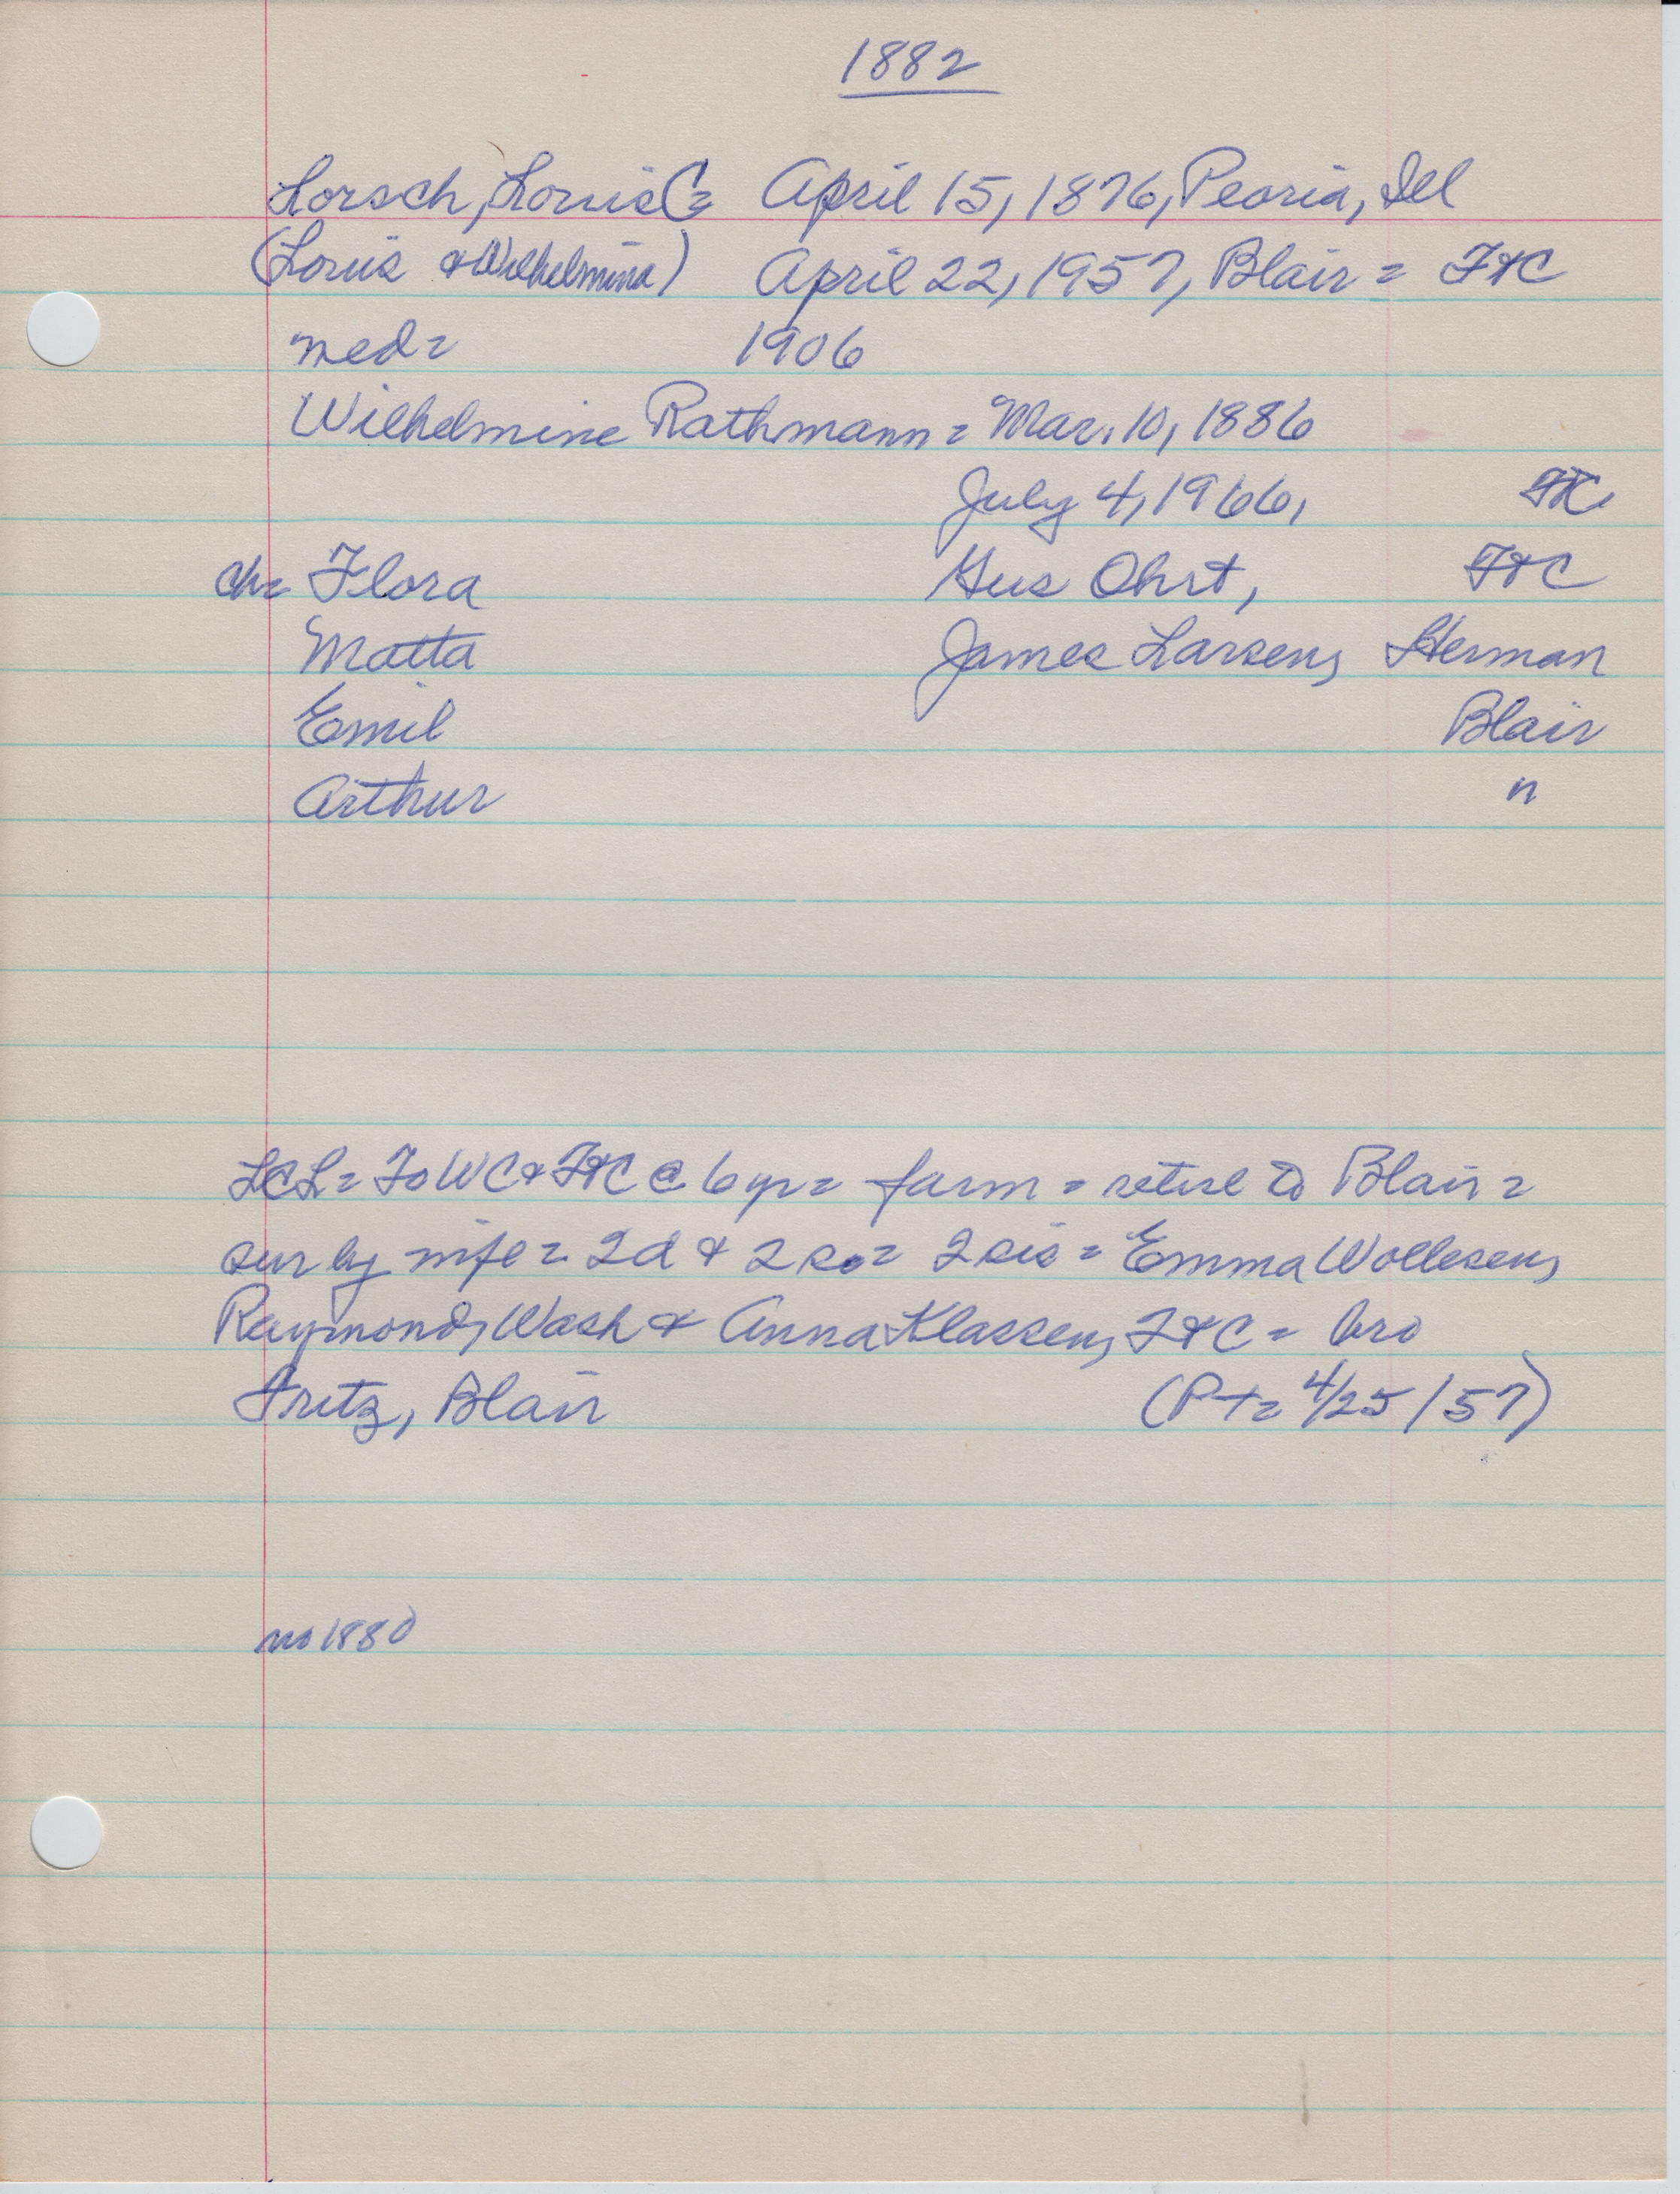 1882
Lorsch, Louis C= April 15, 1876, Peoria, Ill
(Louis & Wilhelmina) April 22, 1957, Blair = FtC
med= 1906
Wilhelmine Rathmann = Mar. 10, 1886
July 4, 1966, FtC
ch= Flora Gus Ohrt, FtC
Matta James Larsen, Herman
Emil Blair
Arthur "
LCL= To WC & FtC @ 6 yr= farm = retire to Blair =
sur by wife = 2d & 2 so= 2 sis = Emma Wollesen,
Raymond, Wash & Anna Klassen, FtC = bro
Fritz, Blair (Pt= 4/25/57)
no 1880